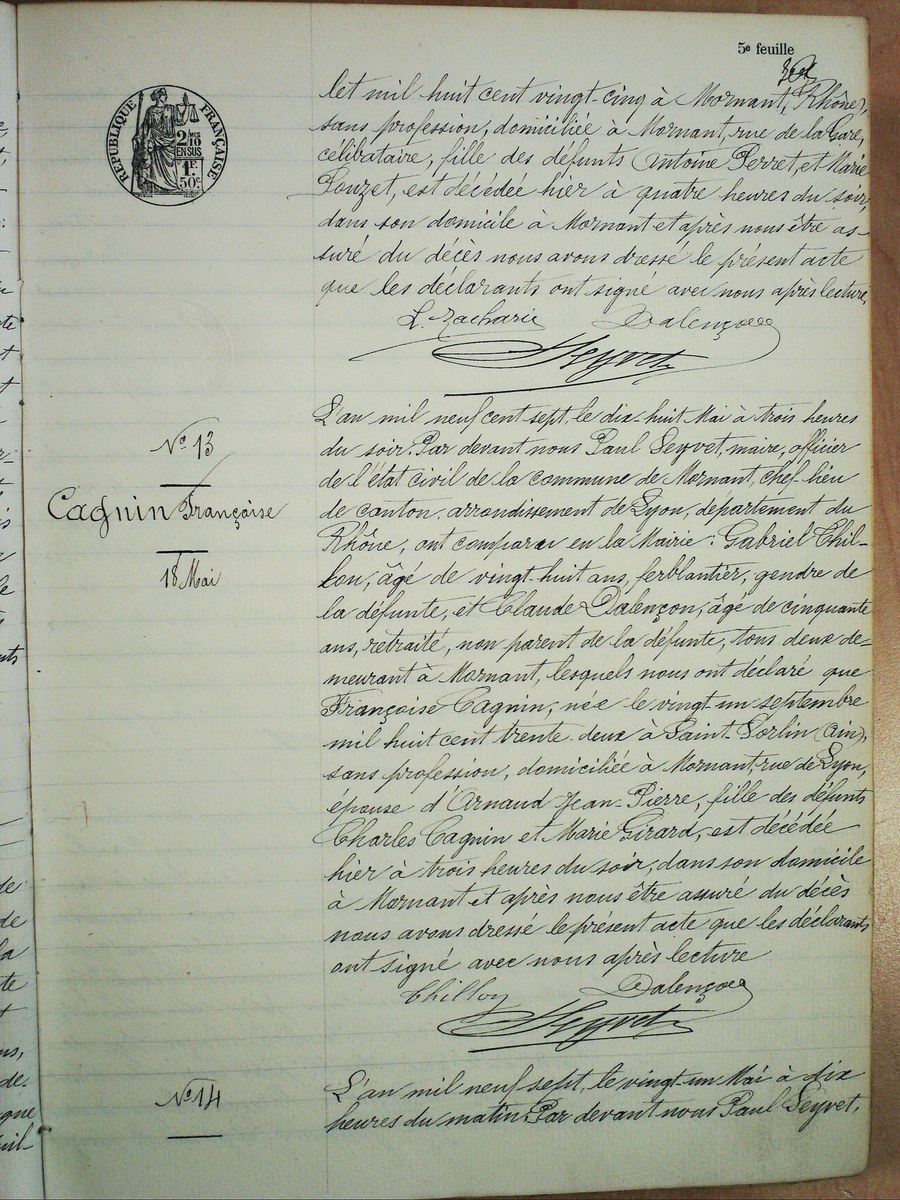 5e feuille
RÉPUBLIQUE FRANÇAISE
2/10
EN SUS
1F
50c
let mil huit cent vingt-cinq à Mornant, (Rhône),
sans profession, domiciliée à Mornant, rue de la Gare,
célibataire, fille des défunts Antoine Perret, et Marie
Louzet, est décédée hier à quatre heures du soir,
dans son domicile à Mornant et après nous être as-
suré du décès nous avons dressé le présent acte
que les déclarants ont signé avec nous après lecture.
L. Zacharie Dalençon
Seyvet
No 13
Cagnin Françoise
18 Mai
L'an mil neuf cent sept, le dix-huit Mai à trois heures
du soir. Par devant nous Paul Seyvet, maire, officier
de l'état civil de la commune de Mornant, chef-lieu
de canton, arrondissement de Lyon, département du
Rhône, ont comparu en la Mairie : Gabriel Chil-
lon, âgé de vingt-huit ans, ferblantier, gendre de
la défunte, et Claude Dalençon, âgé de cinquante
ans, retraité, non parent de la défunte, tous deux de-
meurant à Mornant, lesquels nous ont déclaré que
Françoise Cagnin, née le vingt-un septembre
mil huit cent trente-deux à Saint-Sorlin (Ain),
sans profession, domiciliée à Mornant, rue de Lyon,
épouse d'Arnaud Jean-Pierre, fille des défunts
Charles Cagnin et Marie Girard, est décédée
hier à trois heures du soir, dans son domicile
à Mornant et après nous être assuré du décès
nous avons dressé le présent acte que les déclarants
ont signé avec nous après lecture
Chillon Dalençon
Seyvet
No 14
L'an mil neuf sept, le vingt-un Mai à dix
heures du matin. Par devant nous Paul Seyvet,